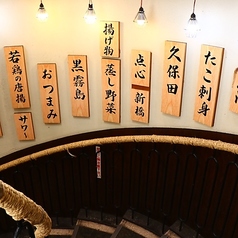 若鶏の唐揚
サワー
おつまみ
黒霧島
揚げ物
蒸し野菜
点心
新橋
久保田
たこ刺身